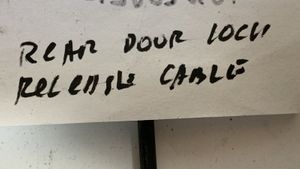 REAR DOOR LOCK
RELEASE CABLE